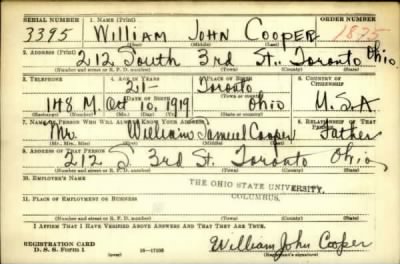 SERIAL NUMBER 1. NAME (Print) ORDER NUMBER (Print)
3395 William John Cooper 1825
(First) (Middle) (Last)
2. ADDRESS (Print)
212 South 3rd St., Toronto Ohio
(Number and street or R. F. D. number) (Town) (County) (State)
3. TELEPHONE 4. AGE IN YEARS 5. PLACE OF BIRTH 6. COUNTRY OF CITIZENSHIP
21 Toronto
DATE OF BIRTH (Town or county)
148 M. Oct 10, 1919 Ohio U.S.A
(Exchange) (Number) (Mo.) (Day) (Yr.) (State or country)
7. NAME OF PERSON WHO WILL ALWAYS KNOW YOUR ADDRESS 8. RELATIONSHIP OF THAT PERSON
Mr. William Samuel Cooper Father
(Mr., Mrs., Miss) (First) (Middle) (Last)
9. ADDRESS OF THAT PERSON
212 S 3rd St. Toronto Ohio
(Number and street or R. F. D. number) (Town) (County) (State)
10. EMPLOYER'S NAME
THE OHIO STATE UNIVERSITY,
11. PLACE OF EMPLOYMENT OR BUSINESS COLUMBUS.
(Number and street or R. F. D. number) (Town) (County) (State)
I AFFIRM THAT I HAVE VERIFIED ABOVE ANSWERS AND THAT THEY ARE TRUE.
REGISTRATION CARD
D. S. S. Form 1 (over) 16-17105 William John Cooper
(Registrant's signature)